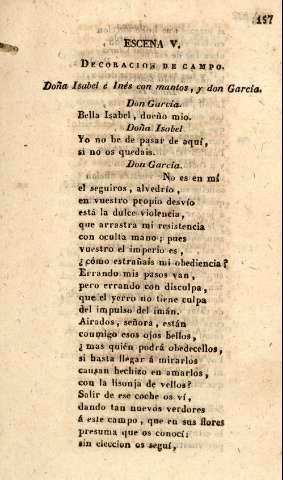 157
ESCENA V.
DECORACION DE CAMPO.
Doña Isabel é Inés con mantos, y don García.
Don García.
Bella Isabel, dueño mio.
Doña Isabel
Yo no he de pasar de aquí,
si no os quedais.
Don García.
No es en mí
el seguiros, alvedrío,
en vuestro propio desvío
está la dulce violencia,
que arrastra mi resistencia
con oculta mano; pues
vuestro el imperio es,
¿cómo estrañais mi obediencia?
Errando mis pasos van,
pero errando con disculpa,
que el yerro no tiene culpa
del impulso del imán.
Airados, señora, están
conmigo esos ojos bellos,
¿mas quién podrá obedecellos,
si hasta llegar á mirarlos
causan hechizo en amarlos,
con la lisonja de vellos?
Salir de ese coche os ví,
dando tan nuevos verdores
á este campo, que en sus flores
presuma que os conocí:
sin eleccion os seguí,